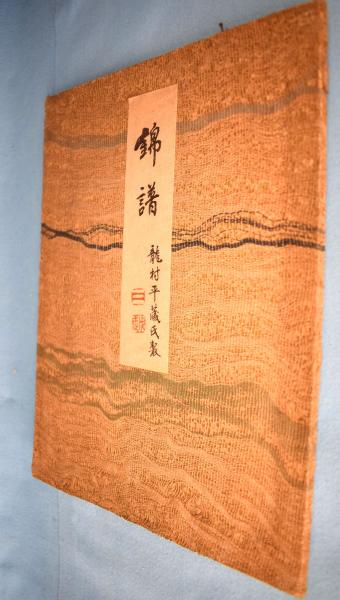 錦譜
龍村平蔵氏製